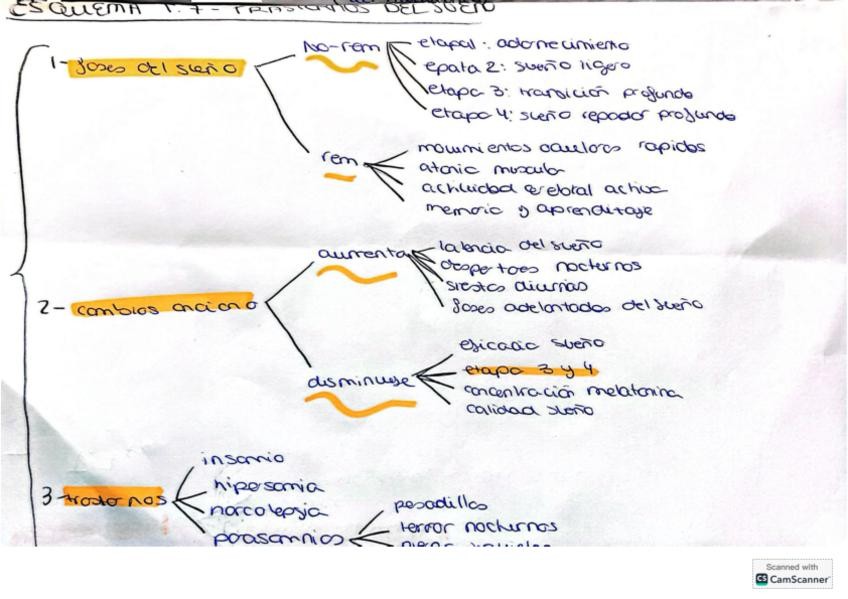 ESQUEMA T.7- TRASTORNOS DEL SUEÑO
1- fases del sueño
No-rem
etapa1: adormecimiento
epata 2: sueño ligero
etapa 3: transición profundo
etapa 4: sueño repador profundo
rem
movimientos oculares rapidos
atonia muscular
actividad cerebral activa
memoria y aprendizaje
2- cambios anciano
aumenta
latencia del sueño
despertares nocternos
siestas diurnas
fases adelantadas del sueño
disminuye
eficacia sueño
etapa 3 y 4
concentración melatonina
calidad sueño
3- trastornos
insomnio
hipersomia
narcolepsia
parasomnios
pesadillas
terror nocturnos
Scanned with
CS CamScanner